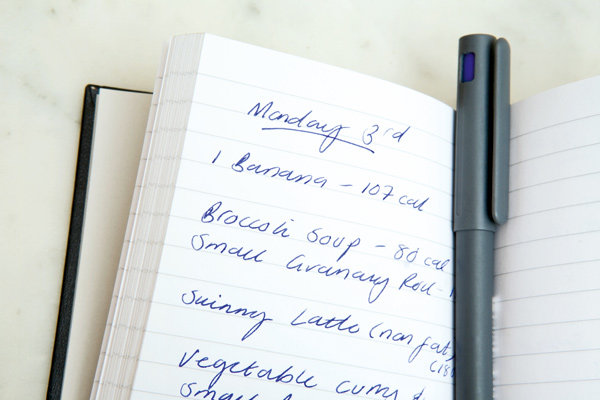 Monday 3rd
1 Banana - 107 cal
Broccoli Soup - 80 cal
Small Granary Roll -
Skinny Latte (non fat)
(18
Vegetable Curry
Small